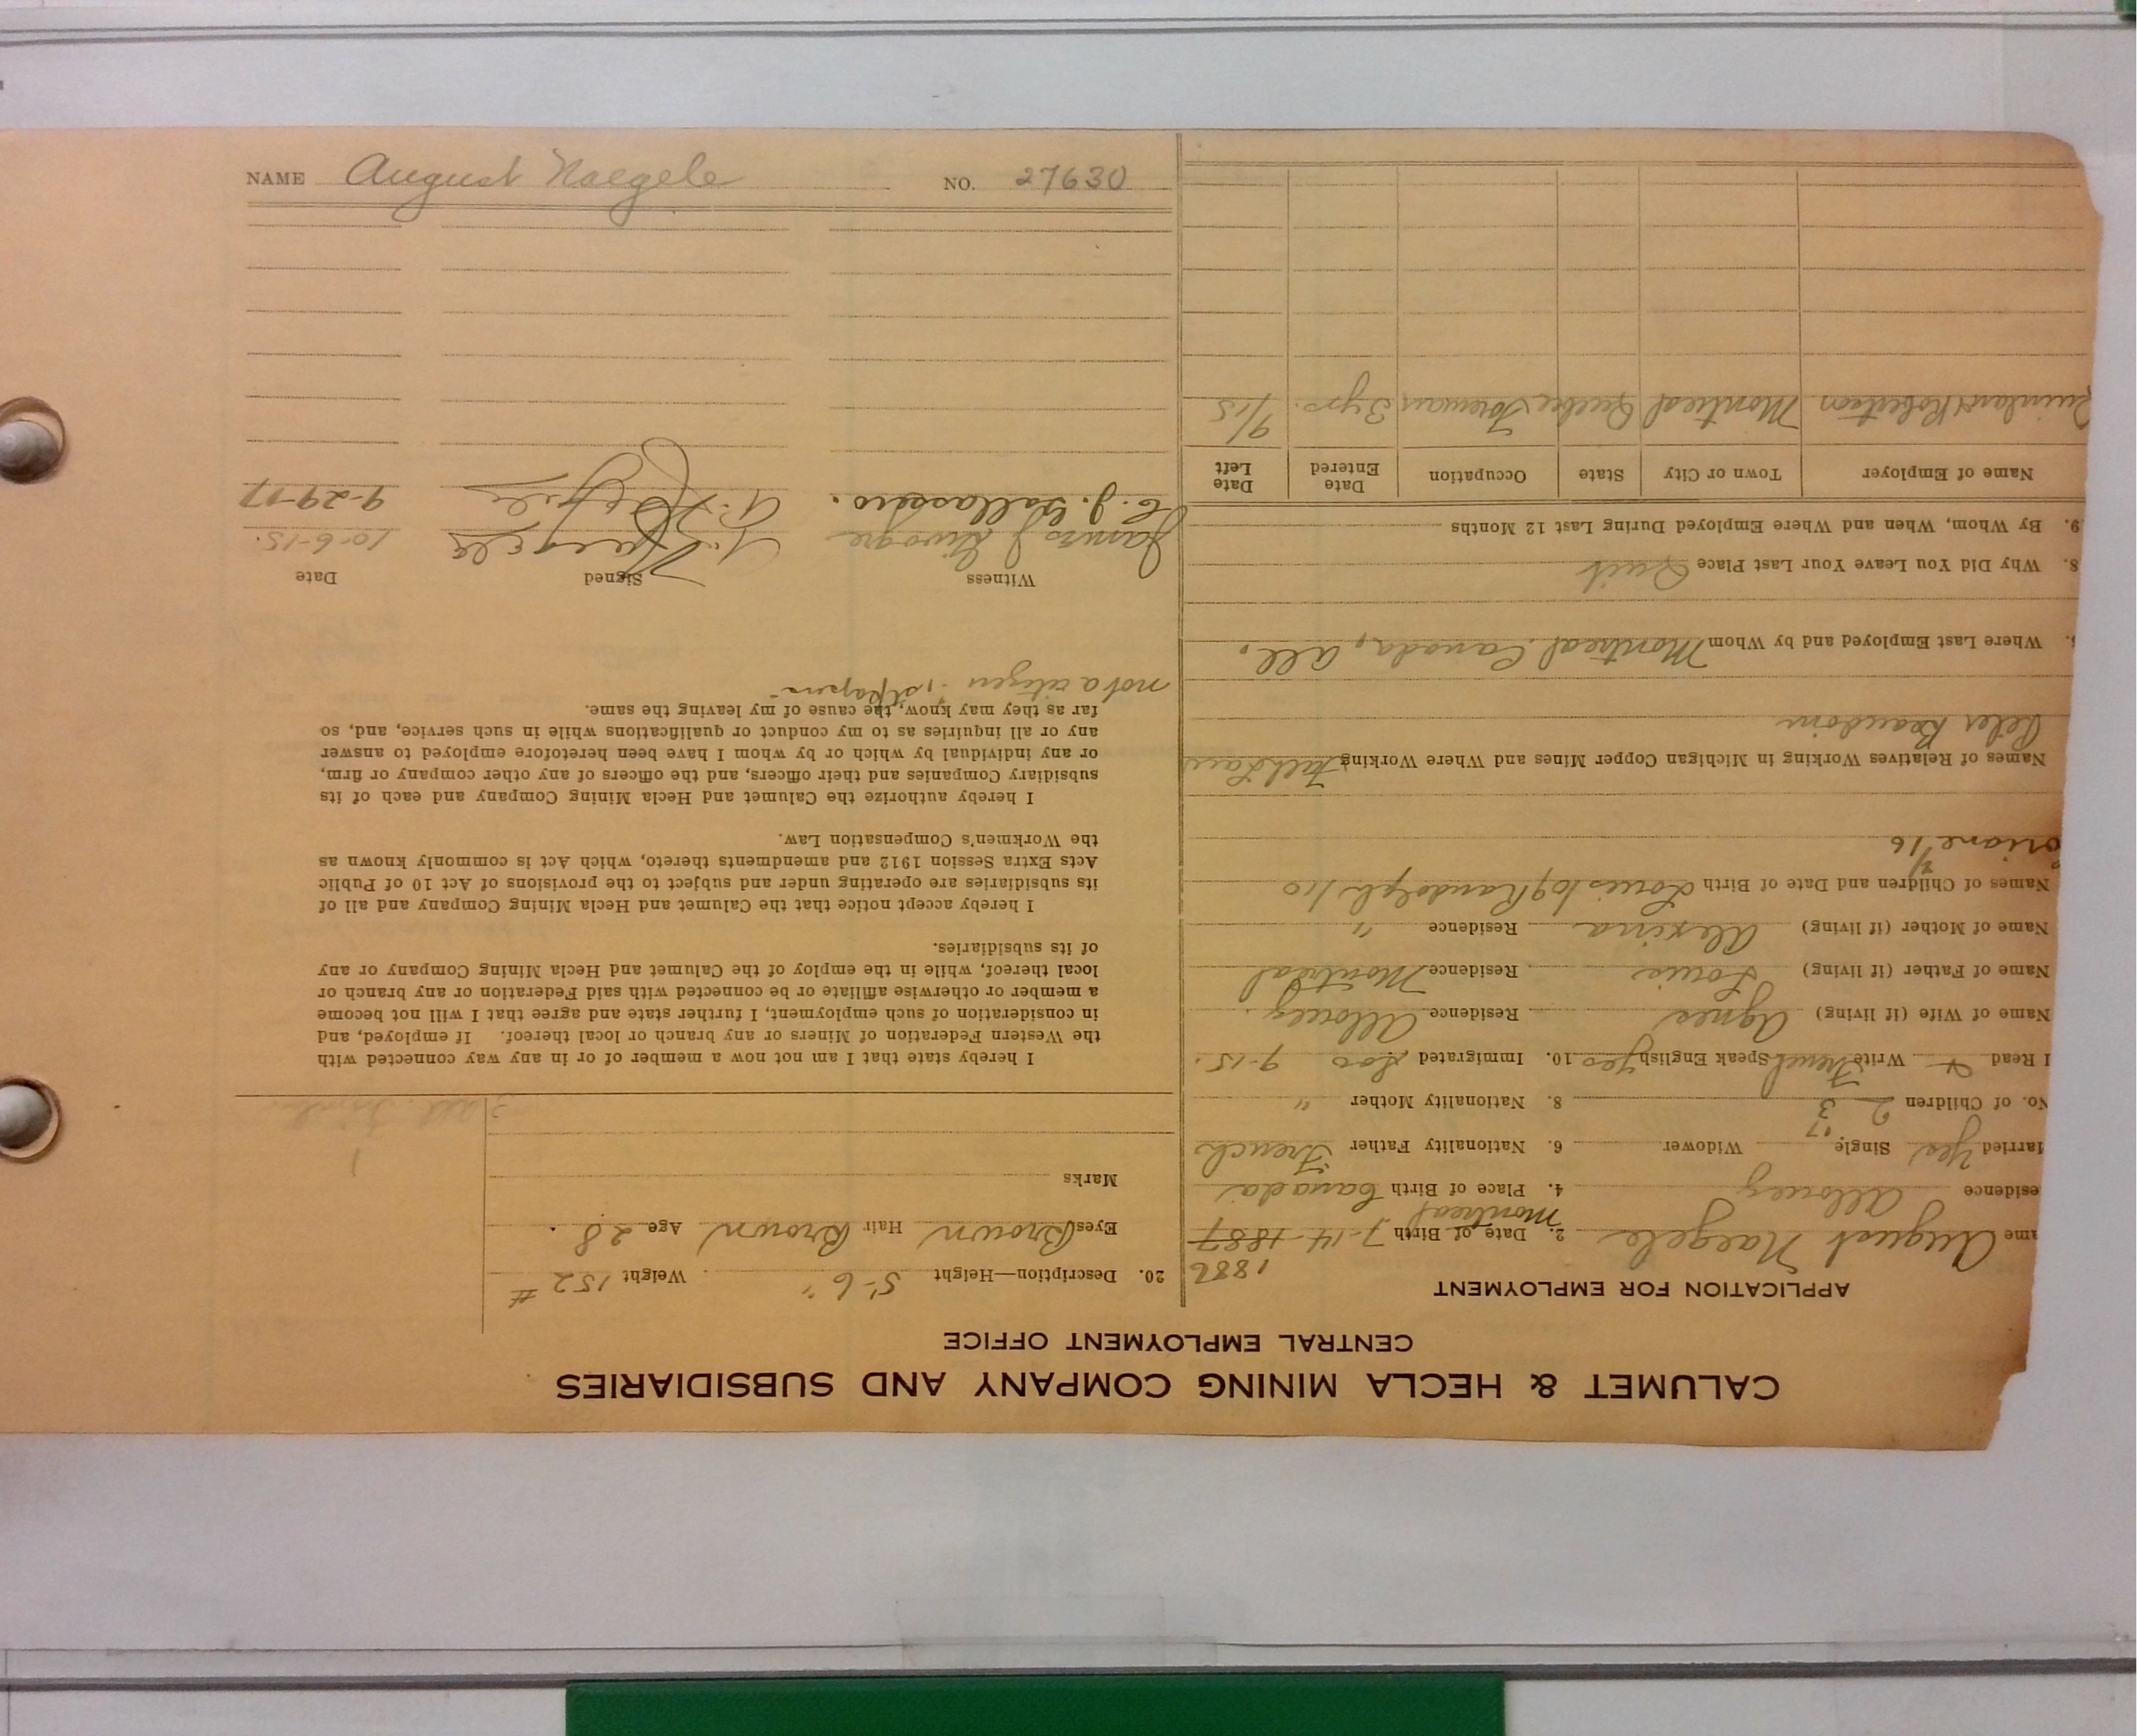 CALUMET & HECLA MINING COMPANY AND SUBSIDIARIES
CENTRAL EMPLOYMENT OFFICE
APPLICATION FOR EMPLOYMENT
1886
ame August Naegele 2. Date of Birth 7-14-1887
esidence Allouez 4. Place of Birth Montreal Canada
Married Yes Single Widower 6. Nationality Father French
'17
No. of Children 2 3 8. Nationality Mother "
I Read & Write French Speak English yes 10. Immigrated Soo 9-15.
Name of Wife (if living) Agnes Residence Allouez.
Name of Father (if living) Louis Residence Montreal
Name of Mother (if living) Alexina Residence "
Names of Children and Date of Birth Louis 109 Randolph 1/10
Names of Relatives Working in Michigan Copper Mines and Where Working
Peter Beaudoin
Where Last Employed and by Whom Montreal Canada, All.
8. Why Did You Leave Your Last Place Quit
9. By Whom, When and Where Employed During Last 12 Months
Name of Employer Town or City State Occupation Date Entered Date Left
Quinlan & Robertson Montreal Quebec Foreman 3 yrs. 9/15
20. Description—Height 5'-6" Weight 152 #
Eyes Brown Hair Brown Age 28.
Marks
I hereby state that I am not now a member of or in any way connected with
the Western Federation of Miners or any branch or local thereof. If employed, and
in consideration of such employment, I further state and agree that I will not become
a member or otherwise affiliate or be connected with said Federation or any branch or
local thereof, while in the employ of the Calumet and Hecla Mining Company or any
of its subsidiaries.
I hereby accept notice that the Calumet and Hecla Mining Company and all of
its subsidiaries are operating under and subject to the provisions of Act 10 of Public
Acts Extra Session 1912 and amendments thereto, which Act is commonly known as
the Workmen's Compensation Law.
I hereby authorize the Calumet and Hecla Mining Company and each of its
subsidiary Companies and their officers, and the officers of any other company or firm,
or any individual by which or by whom I have been heretofore employed to answer
any or all inquiries as to my conduct or qualifications while in such service, and, so
far as they may know, the cause of my leaving the same.
not a citizen - 1st papers -
Witness Signed Date
A. Naegele 10-6-15.
A. Naegele 9-29-17
NAME August Naegele NO. 27630